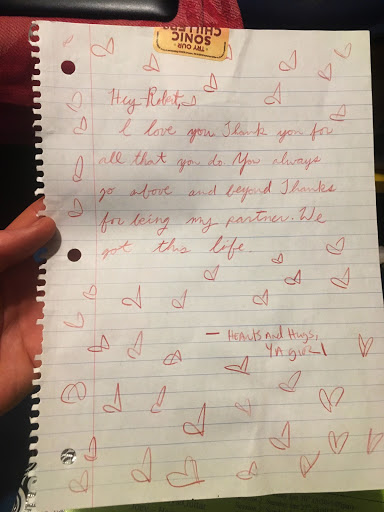 TRY OUR
SONIC
CHILLERS
Hey Robert,
I love you Thank you for
all that you do. You always
go above and beyond Thanks
for being my partner. We
got this life
— Hearts and Hugs,
Ya girl